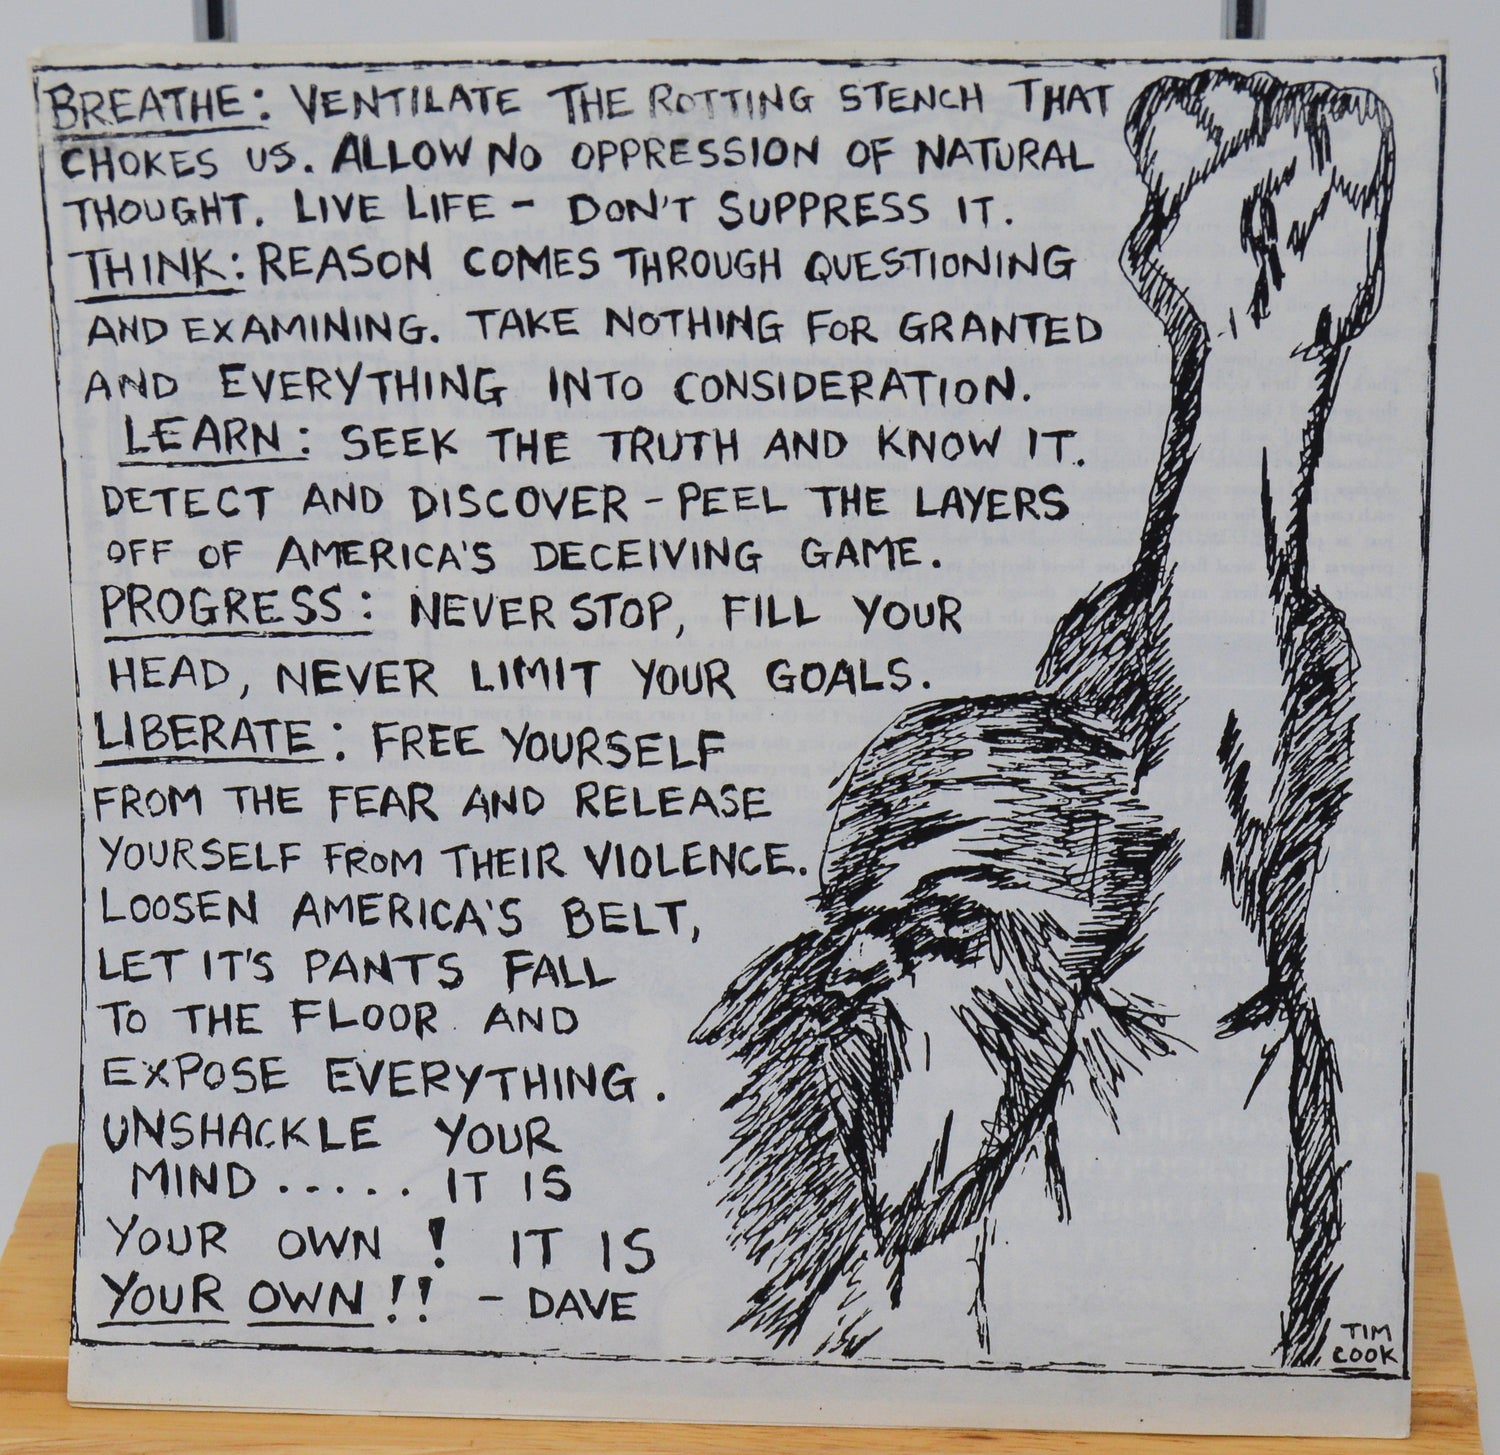 BREATHE: VENTILATE THE ROTTING STENCH THAT
CHOKES US. ALLOW NO OPPRESSION OF NATURAL
THOUGHT. LIVE LIFE - DON'T SUPPRESS IT.
THINK: REASON COMES THROUGH QUESTIONING
AND EXAMINING. TAKE NOTHING FOR GRANTED
AND EVERYTHING INTO CONSIDERATION.
LEARN: SEEK THE TRUTH AND KNOW IT.
DETECT AND DISCOVER - PEEL THE LAYERS
OFF OF AMERICA'S DECEIVING GAME.
PROGRESS: NEVER STOP, FILL YOUR
HEAD, NEVER LIMIT YOUR GOALS.
LIBERATE: FREE YOURSELF
FROM THE FEAR AND RELEASE
YOURSELF FROM THEIR VIOLENCE.
LOOSEN AMERICA'S BELT,
LET IT'S PANTS FALL
TO THE FLOOR AND
EXPOSE EVERYTHING.
UNSHACKLE YOUR
MIND..... IT IS
YOUR OWN! IT IS
YOUR OWN!! - DAVE
TIM
COOK